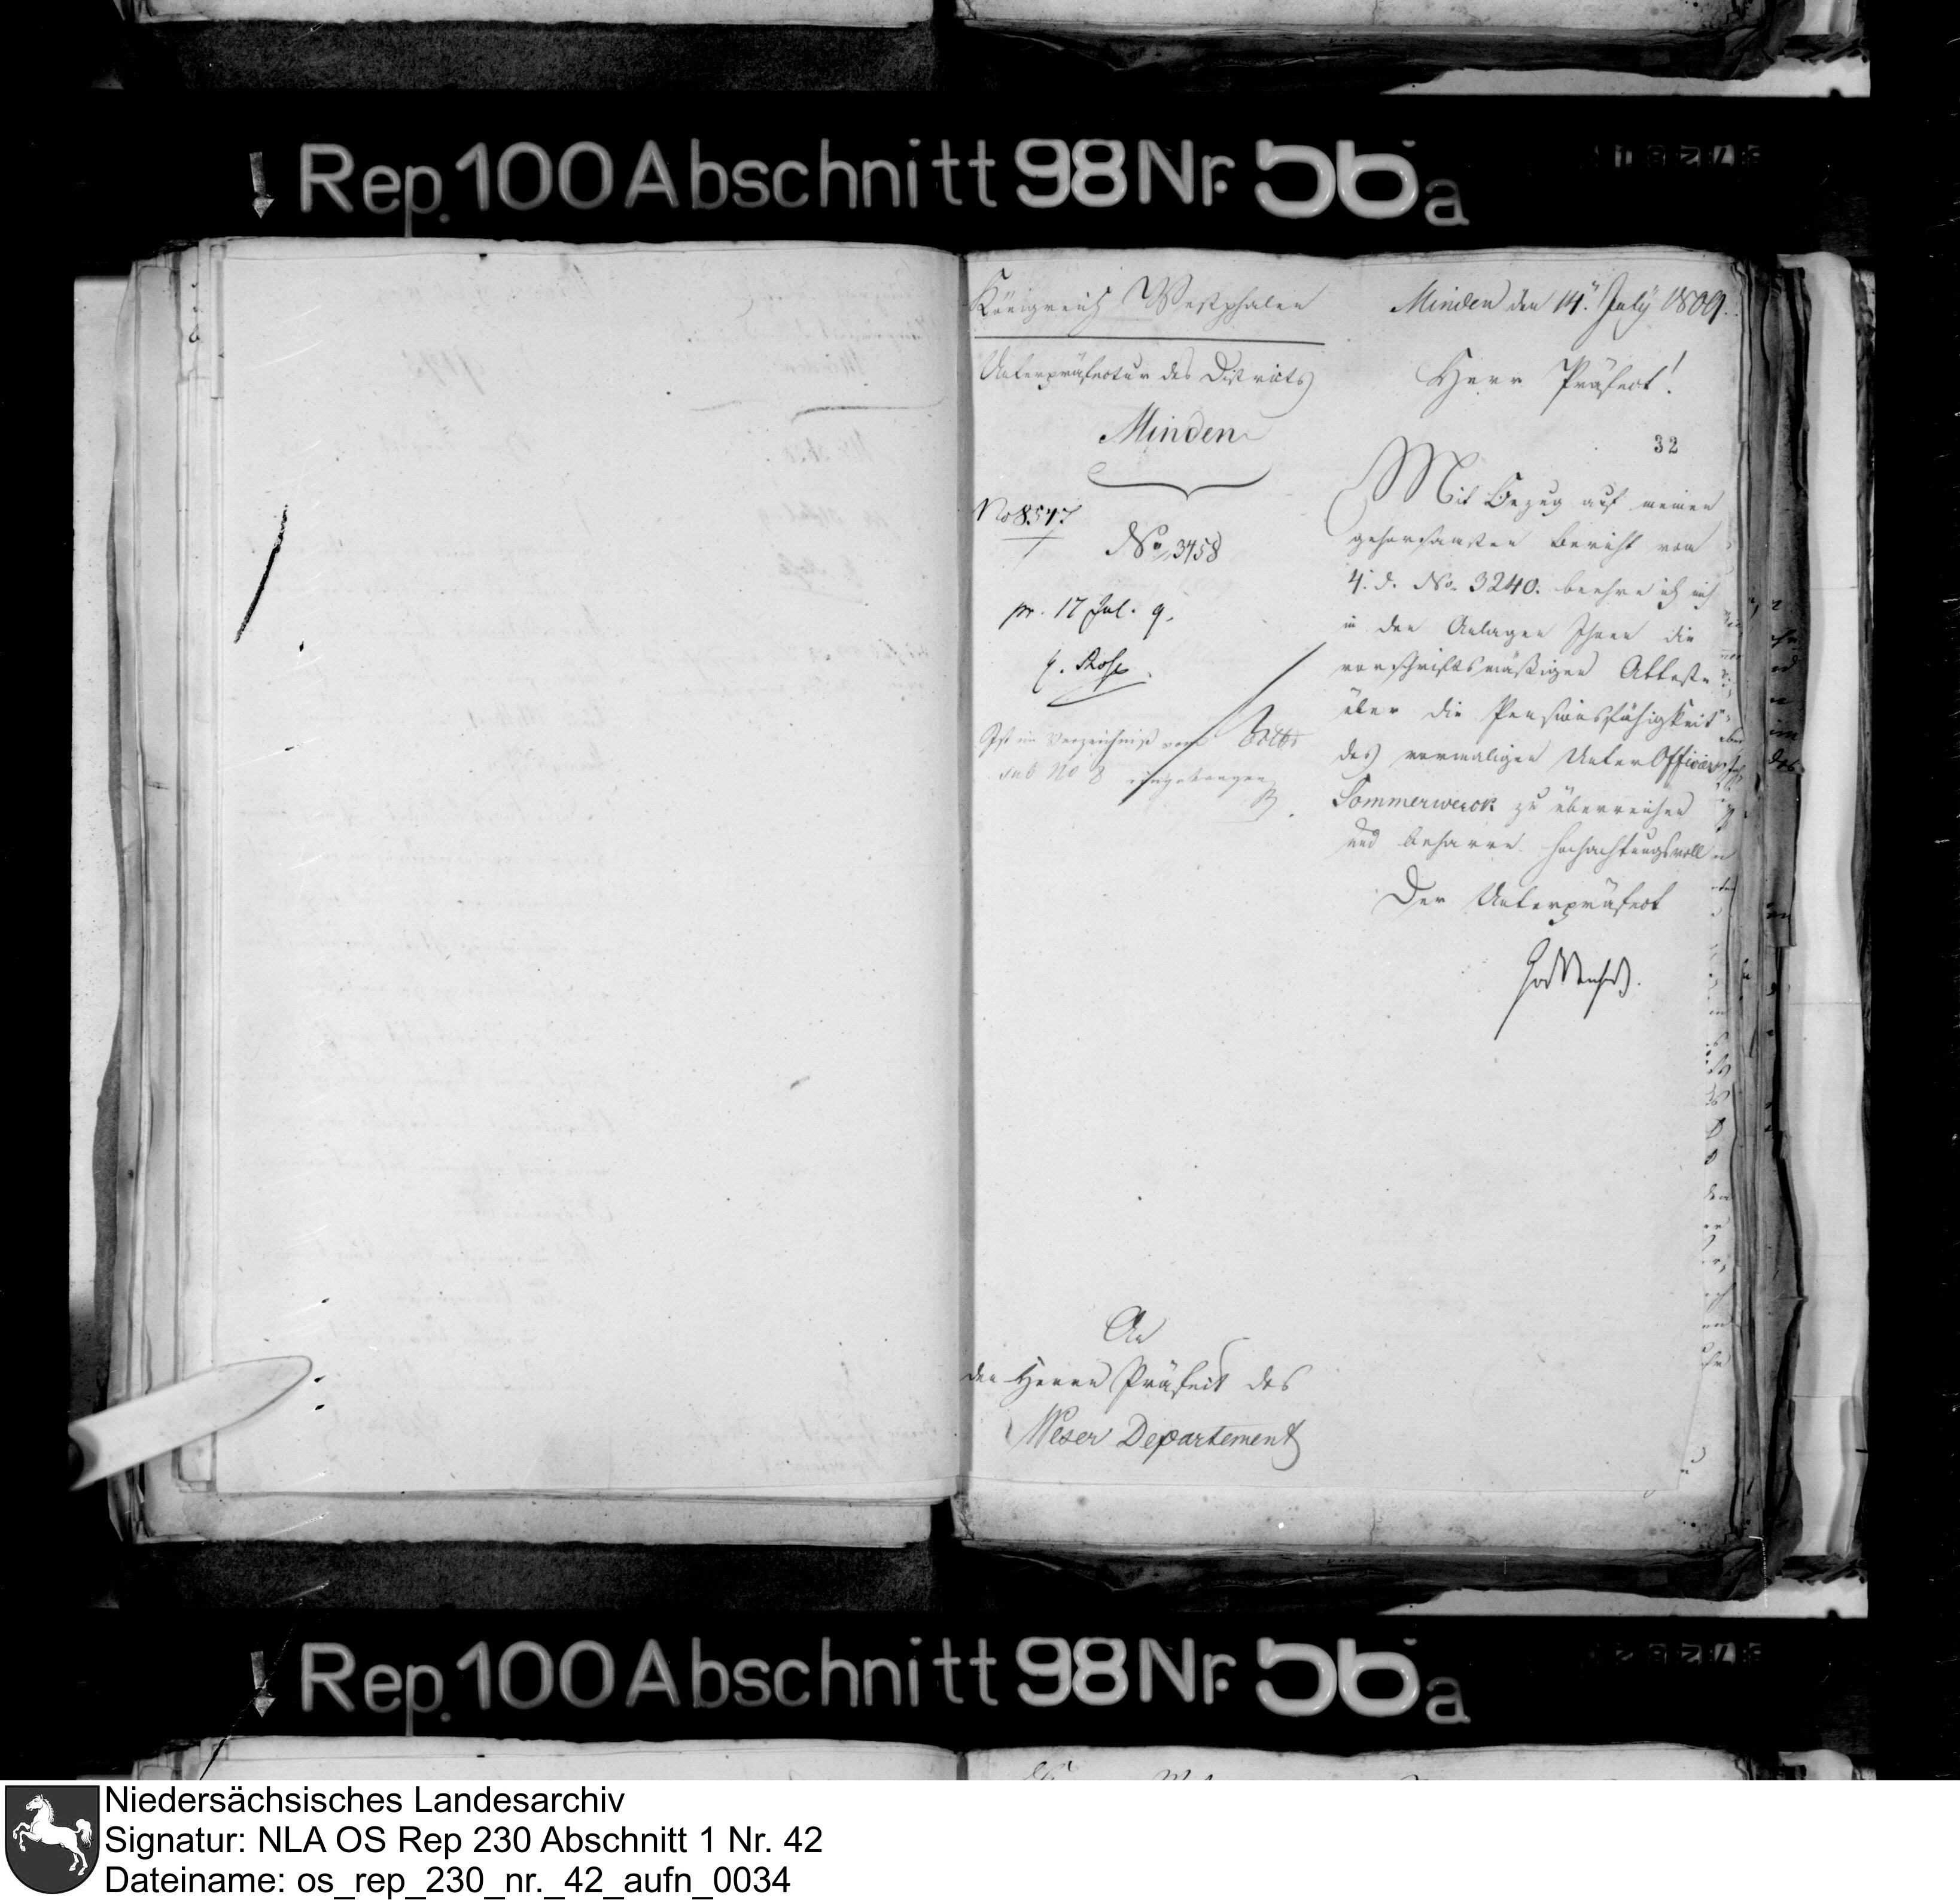 Rep. 100 Abschnitt 98 Nr. 56a
Königreich Westphalen
Unterpräfectur des Districts
Minden
No 8547
No. 3458
pr. 17 Jul. 9.
Ist im Verzeichniß vom
sub No 8 eingetragen
An
den Herrn Präfect des
Weser Departement
Minden den 14. July 1809.
Herr Präfect!
32
Mit Bezug auf meinen
gehorsamsten Bericht vom
4. d. No. 3240. beehre ich mich
in den Anlagen Ihnen die
vorschriftsmäßigen Atteste
über die Pensionsfähigkeit
des vormaligen Unter Officiers
Sommerwerck zu überreichen
und beharre hochachtungsvoll
Der Unterpräfect
Rep. 100 Abschnitt 98 Nr. 56a
Niedersächsisches Landesarchiv
Signatur: NLA OS Rep 230 Abschnitt 1 Nr. 42
Dateiname: os_rep_230_nr._42_aufn_0034